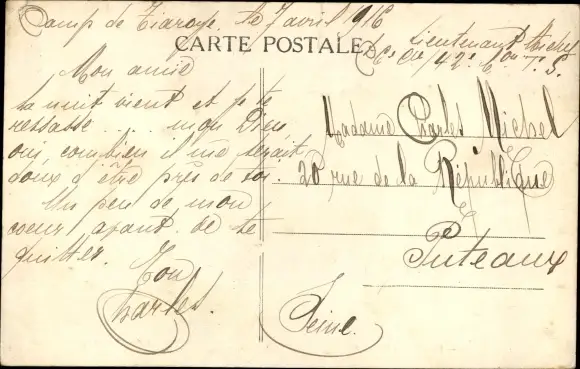 Camp de Tiaroye, le 7 avril 1916
Lieutenant Michel
42e Bon T. S.
CARTE POSTALE
Mon amie
La nuit vient et je te
ressasse.... mon Dieu,
oui, combien il me serait
doux d'être près de toi.
Un peu de mon
coeur avant de te
quitter.
Ton
Charles.
Madame Charles Michel
20 rue de la République
Puteaux
Seine.